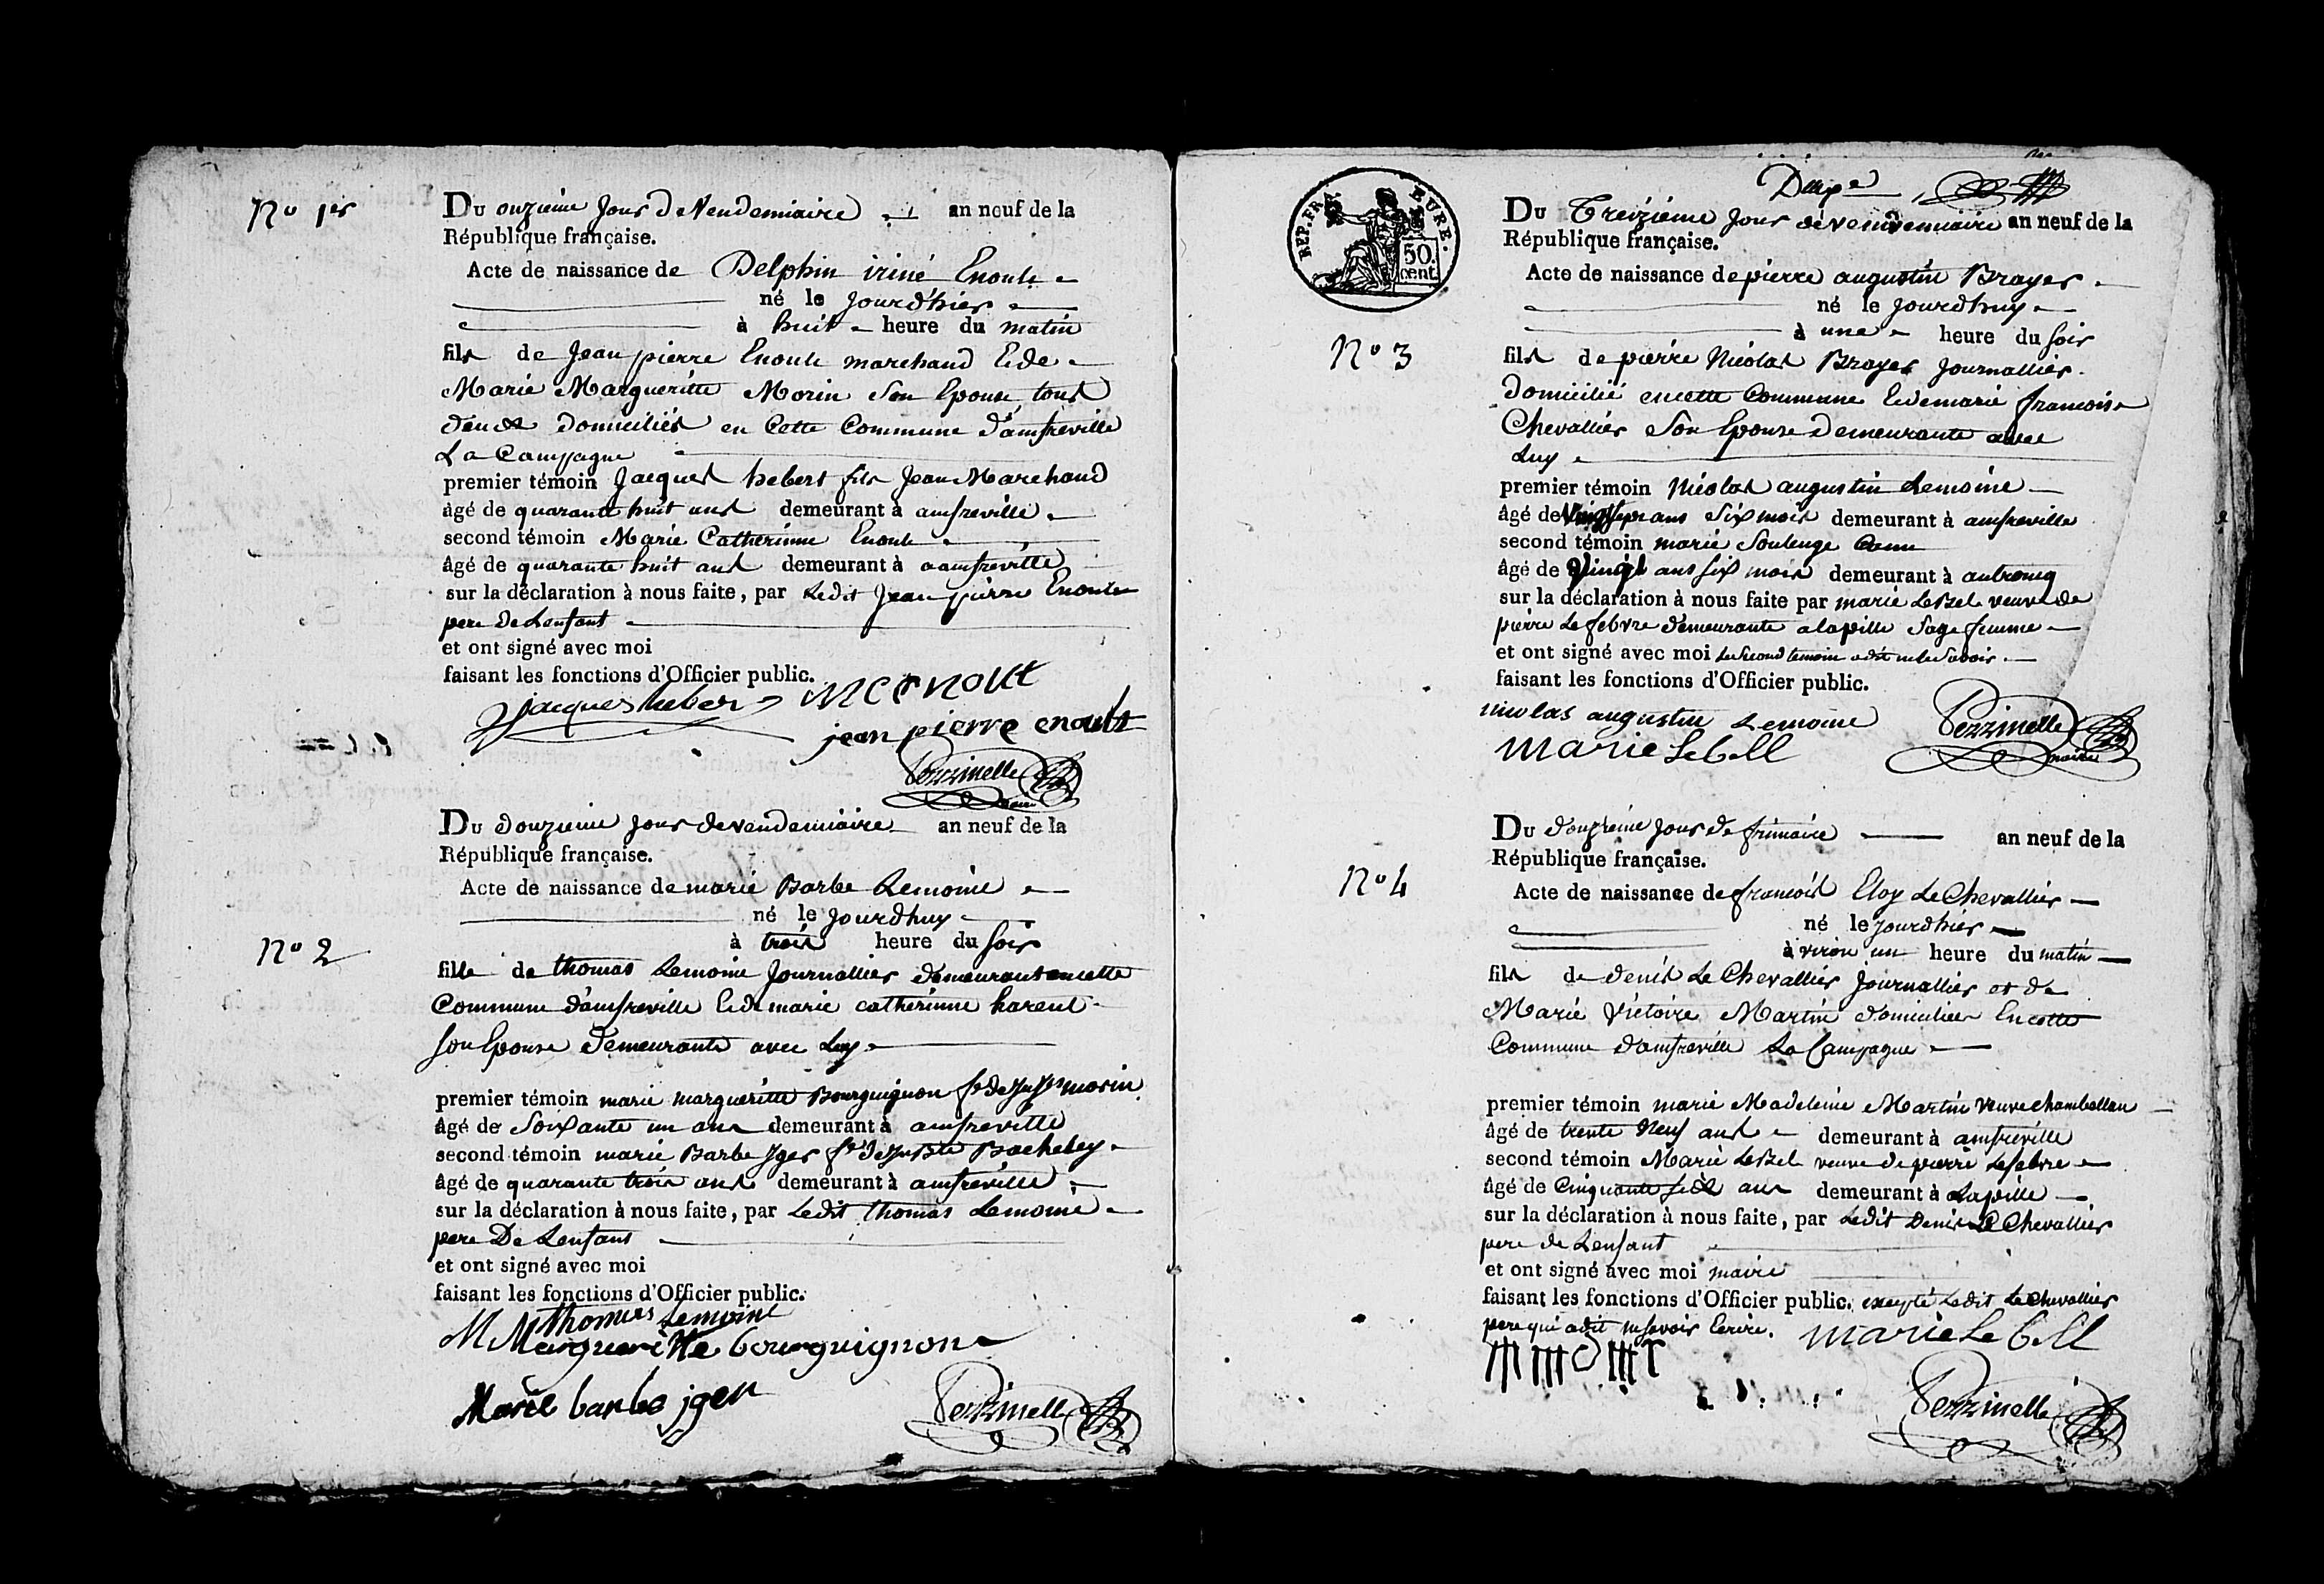 No 1er
Du onzieme Jour de Vendemiaire an neuf de la
République française.
Acte de naissance de Delphin iriné Enoult
né le Jourd'hier
à huit heure du matin
fils de Jean pierre Enoult marchand Et de
Marie Margueritte Morin Son Epouse tous
deux domiciliés en Cette Commune d'amfreville
La Campagne
premier témoin Jacques hebert fils Jean Marchand
âgé de quarante huit ans demeurant à amfreville
second témoin Marie Catherinne Enoult
âgé de quarante huit ans demeurant à aamfreville
sur la déclaration à nous faite, par Ledit Jean pierre Enoulte
pere de Lenfant
et ont signé avec moi
faisant les fonctions d'Officier public.
jacques heber mc enoult
jean pierre enoult
Perzinelle
maire
Du douzieme Jour de vendemiaire an neuf de la
République française.
Acte de naissance de marie Barbe Lemoine
né le Jourdhuy
No 2
à trois heure du soir
fille de thomas Lemoine Journallier demeurant encette
Commune d'amfreville Et de marie catherinne harent
son Epouse demeurante avec Luy
premier témoin marie margueritte Bourguignon fe de morin
âgé de Soixante un ans demeurant à amfreville
second témoin marie Barbe Yger fe de Bacheley
âgé de quarante trois ans demeurant à amfreville
sur la déclaration à nous faite, par Ledit thomas Lemoine
pere De Lenfant
et ont signé avec moi
faisant les fonctions d'Officier public.
thomas Lemoine
M Margueritte bourguignon
Marie barbe jger
Perzinelle
REP. FRA. EURE.
50 cent.
Du Treizieme Jour de vendemiaire an neuf de la
République française.
Acte de naissance de pierre augustin Brayer
né le Jourdhuy
à une heure du soir
No 3
fils de pierre Nicolas Brayer Journallier
domicilié encette Commune Et de marie francoise
Chevallier Son Epouse Demeurante avec
Luy
premier témoin Nicolas augustin Lemoine
âgé de Vingt Sept ans Six mois demeurant à amfreville
second témoin marie Soulenge
âgé de Vingt ans six mois demeurant à
sur la déclaration à nous faite par marie LeBel veuve de
pierre Lefebvre demeurante alapille Sage femme
et ont signé avec moi Le Second temoin a dit ne le Savoir
faisant les fonctions d'Officier public.
nicolas augustin Lemoine
Perzinelle
marie Lebell
maire
Du douzieme Jour de frimaire an neuf de la
République française.
No 4
Acte de naissance de francois Eloy Le Chevallier
né le jourdhier
à viron un heure du matin
fils de denis Le Chevallier Journallier et de
Marie Victoire Martin domicilier Encette
Commune d'amfreville La Campagne
premier témoin marie Madeleine Martin Veuve chambellan
âgé de trente Neuf ans demeurant à amfreville
second témoin Marie LeBel veuve de pierre Lefebvre
âgé de Cinquante ans demeurant à Lapille
sur la déclaration à nous faite, par Ledit Denis Le Chevallier
pere de Lenfant
et ont signé avec moi maire
faisant les fonctions d'Officier public. excepté Ledit Le Chevallier
pere qui a dit ne savoir Ecrire.
marie Le bell
Perzinelle